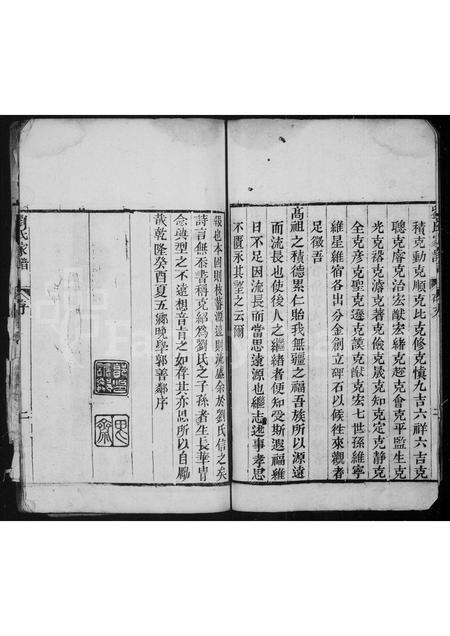 積克動克順克比克修克慎九吉六祥六吉克
聰克睿克治宏猷宏緒克超克會克平監生克
光克容克濤克著克儉克晟克知克定克靜克
全克彥克聖克遴克謨克猷克宏七世孫維寧
維星維宿各出分金創立碑石以候徃來觀者
足徵吾
高祖之積德累仁貽我無疆之福吾族所以源遠
而流長也使後人之繼緒者便知受斯遐福維
日不足因流長而當思遠源也繼志述事孝思
不匱永其望之云爾
劉氏家譜
序
二
報也本固則枝蕃源遠則流盛余於劉氏信之矣
詩言無忝書稱克紹為劉氏之子孫者生長華胄
念典型之不遠想音旨之如存其亦思所以自勵
哉乾隆癸酉夏五鄉晚學郭善鄰序